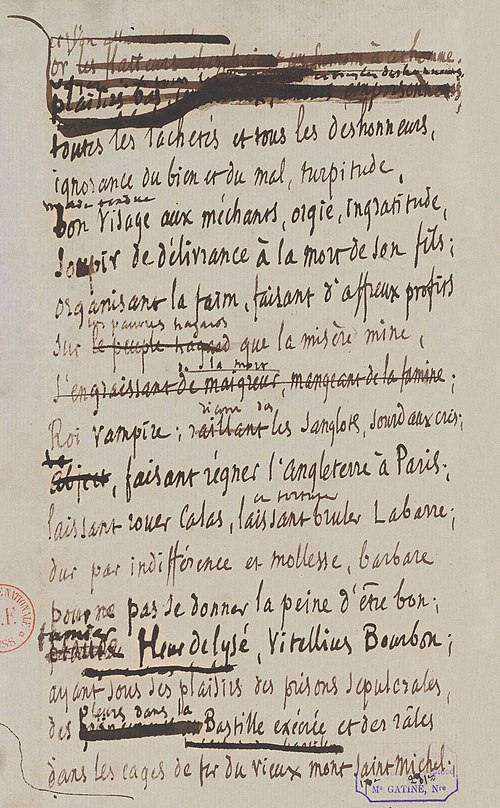 or les flatteurs cherchaient
plaisirs bas
toutes les lachetés et tous les deshonneurs,
ignorance du bien et du mal, turpitude,
bon visage aux méchants, orgie, ingratitude,
soupir de délivrance à la mort de son fils ;
organisant la faim, faisant d'affreux profits
les pauvres hagards
sur le peuple hagard que la misère mine,
de la mort
s'engraissant de maigreur, mangeant de la famine ;
Roi vampire ; raillant les sanglots, sourd aux cris ;
abject, faisant régner l'Angleterre à Paris ;
en torture
laissant rouer Calas, laissant bruler Labarre ;
dur par indifférence et mollesse, barbare
pour ne pas se donner la peine d'être bon ;
fumier
fleur de lysé, Vitellius Bourbon ;
ayant sous ses plaisirs des prisons sépulcrales,
pleurs dans la
des Bastille exécrée et des râles
dans les cages de fer du vieux mont Saint Michel ;
NATIONALE
MSS.
Me GATINE, Nre